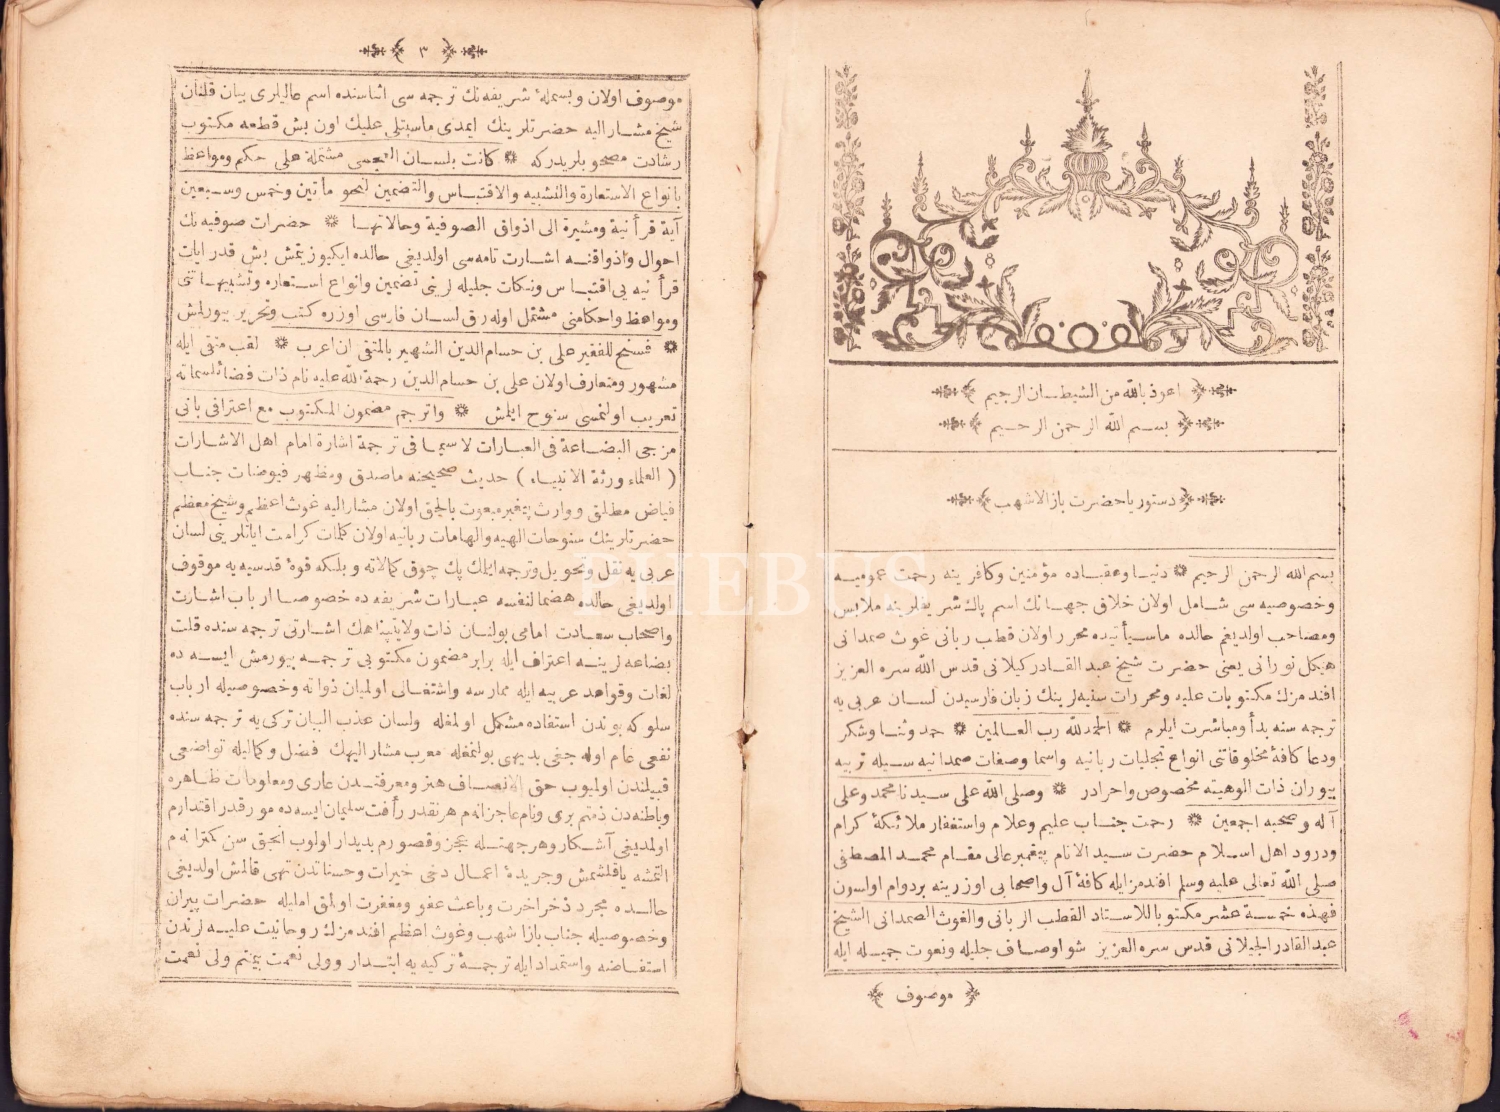 اعوذ بالله من الشيطان الرجيم
بسم الله الرحمن الرحيم
دستور ياحضرت باز الاشهب
بسم الله الرحمن الرحيم ❊ دنيا وعقباده مؤمنين وكافرينه رحمت عموميه
وخصوصيه سى شامل اولان خلاق جهانك اسم پاك شريفلرينه ملابس
ومصاحب اولديغم حالده ماسيأتيده محرر اولان قطب ربانى غوث صمدانى
هيكل نورانى يعنى حضرت شيخ عبد القادر كيلانى قدس الله سره العزيز
افندمزك مكتوبات عليه ومحررات سنيه لرينك زبان فارسيدن لسان عربى يه
ترجمه سنه بدأ ومباشرت ايلرم ❊ الحمد لله رب العالمين ❊ حمد وثنا وشكر
ودعا كافۀ مخلوقاتى انواع تجليات ربانيه واسما وصفات صمدانيه سيله تربيه
بيوران ذات الوهيته مخصوص واحرادر ❊ وصلى الله على سيدنا محمد وعلى
آله وصحبه اجمعين ❊ رحمت جناب عليم وعلام واستغفار ملائكۀ كرام
ودرود اهل اسلام حضرت سيد الانام پيغمبر عالى مقام محمد المصطفى
صلى الله تعالى عليه وسلم افندمز ايله كافۀ آل واصحابى اوزرينه بردوام اولسون
فهذه خمسة عشر مكتوبا للاستاد القطب الربانى والغوث الصمدانى الشيخ
عبد القادر الجيلانى قدس سره العزيز شو اوصاف جليله ونعوت جميله ايله
موصوف
٣
موصوف اولان وبسملۀ شريفه نك ترجمه سى اثناسنده اسم عاليلرى بيان قلنان
شيخ مشار اليه حضرتلرينك ايمدى ماسيتلى عليك اون بش قطعه مكتوب
رشادت مصحوبلريدركه ❊ كانت بلسان مشتملة على حكم ومواعظ
بانواع الاستعارة والتشبيه والاقتباس والتضمين لنحو مأتين وخمس وسبعين
آية قرأنية ومشيرة الى اذواق الصوفية وحالاتها ❊ حضرات صوفيه نك
احوال واذواقنه اشارت تامه سى اولديغى حالده ايكيوز يتمش بش قدر ايات
قرأنيه يى اقتباس ونكات جليله لرينى تضمين وانواع استعاره وتشبيهاتى
ومواعظ واحكامنى مشتمل اوله رق لسان فارسى اوزره كتب وتحرير بيورلمش
❊ فسنح للفقير على بن حسام الدين الشهير بالمتقى ان اعرب ❊ لقب متقى ايله
مشهور ومتعارف اولان على بن حسام الدين رحمة الله عليه نام ذات فضائلسماته
تعريب اولنمسى سنوح ايلمش ❊ واترجم مضمون المكتوب مع اعترافى بانى
مزجى البضاعة فى العبارات لاسيما فى ترجمة اشارة امام اهل الاشارات
( العلماء ورثة الانبياء ) حديث صحيحنه ماصدق ومظهر فيوضات جناب
فياض مطلق ووارث پيغمبر مبعوث بالحق اولان مشار اليه غوث اعظم وشيخ معظم
حضرتلرينك سنوحات الهيه والهامات ربانيه اولان كلمات كرامت اياتلرينى لسان
عربى يه نقل وتحويل وترجمه ايلمك پك چوق كمالاته وبلكه قوۀ قدسيه يه موقوف
اولديغى حالده هضما لنفسه عبارات شريفه ده خصوصا ارباب اشارت
واصحاب سعادت امامى بولنان ذات ولايتپناهك اشارتى ترجمه سنده قلت
بضاعه لرينه اعتراف ايله برابر مضمون مكتوبى ترجمه بيورمش ايسه ده
لغات وقواعد عربيه ايله ممارسه واشتغالى اولميان ذواته وخصوصيله ارباب
سلوكه بوندن استفاده مشكل اولمغله ولسان عذب البيان تركى يه ترجمه سنده
نفعى عام اوله جغى بديهى بولنمغله معرب مشار اليهك فضل وكماليله تواضعى
قبيلندن اولميوب حق الانصاف هنر ومعرفتدن عارى ومعلومات ظاهره
وباطنه دن ذمتم برى ونام عاجزانه م هر نقدر رأفت سليمان ايسه ده مور قدر اقتدارم
اولمديغى آشكار وهر جهتله عجز وقصورم بديدار اولوب انجق سن كمترانه م
التمشه ياقلشمش وجريدۀ اعمال دخى خيرات وحسناتدن تهى قالمش اولديغى
حالده مجرد ذخر اخرت وباعث عفو ومغفرت اولمق امليله حضرات پيران
وخصوصيله جناب باز اشهب وغوث اعظم افندمزك روحانيت عليه لرندن
استفاضه واستمداد ايله ترجمۀ تركيه يه ابتدار وولى نعمت بيمنتم ولى نعمت